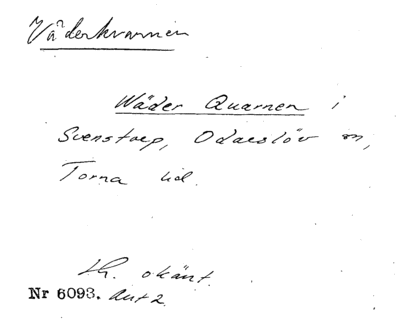 Väderkvarnen
Wäder Quarnen i
Svenstorp, Odarslöv sn,
Torna hd.
th. okänt.
Nr 6093. Aut 2.